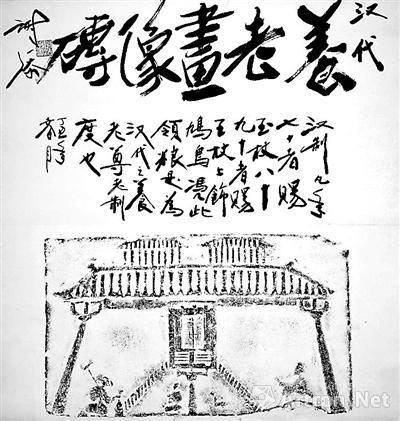 汉代
養老畫像磚
汉制凡年
七十者赐
玉杖八十
九十者赐
玉杖上飾
鸠鳥凭此
領粮 为
汉代之養
老尊老制
度也
Artron.Net